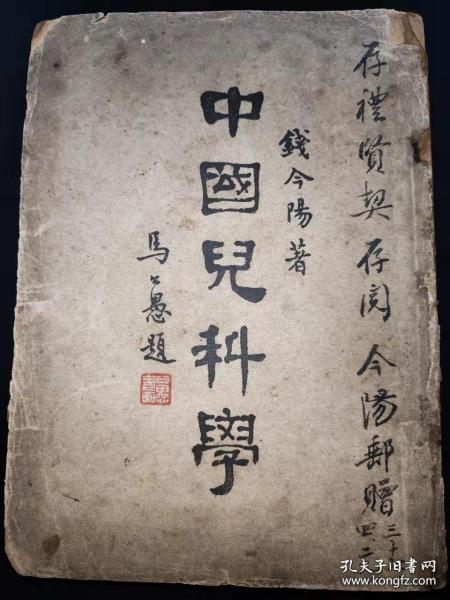 存禮賢契存閱今陽郵贈三十
四、二
錢今陽著
中國兒科學
馬公愚題
孔夫子旧书网
www.kongfz.com